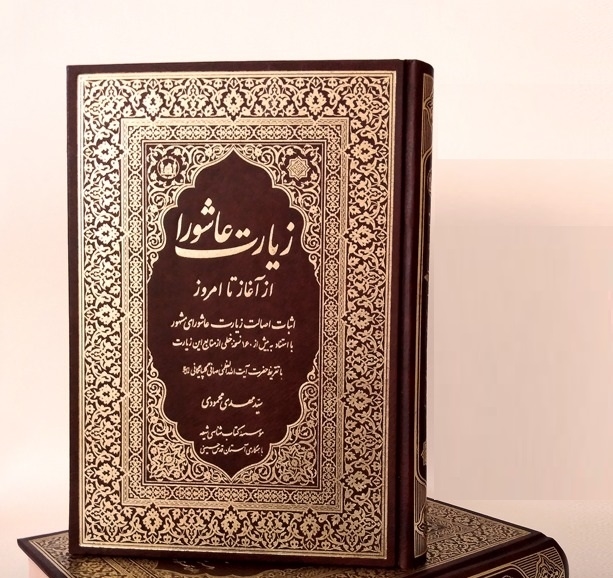 زیارت عاشورا
از آغاز تا امروز
اثبات اصالت زیارت عاشورای مشهور
با استناد به بیش از ۱۶۰ نسخه خطی از منابع این زیارت
با تقریظ حضرت آیت الله العظمی صافی گلپایگانی
سید مهدی محمودی
موسسه کتاب شناسی شیعه
با همکاری آستان قدس حسینی